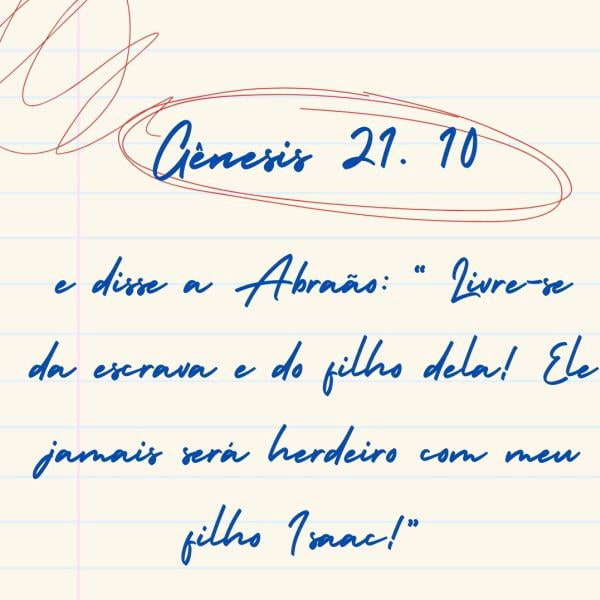 Gênesis 21. 10
e disse a Abraão: “ Livre-se
da escrava e do filho dela! Ele
jamais será herdeiro com meu
filho Isaac!”